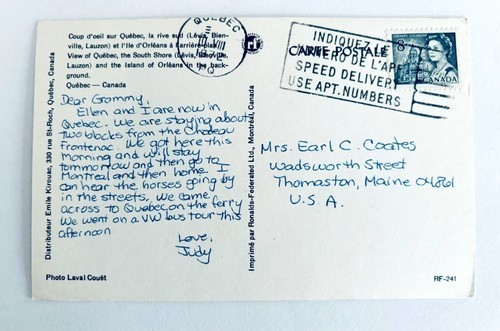 Coup d'oeil sur Québec, la rive sud (Lévis, Bien-
ville, Lauzon) et l'Ile d'Orléans à l'arrière-plan.
View of Québec, the South Shore (Lévis, Bienville,
Lauzon) and the Island of Orléans in the back-
ground.
Québec — Canada
Dear Grammy,
Ellen and I are now in
Quebec. We are staying about
two blocks from the Chadeau
Frontenac. We got here this
morning and will stay
tommorrow and then go to
Montreal and then home. I
can hear the horses going by
in the streets. We came
across to Quebec on the ferry
We went on a VW bus tour this
afternoon
Love,
Judy
Photo Laval Couët
Distributeur Emile Kirouac, 330 rue St-Roch, Québec, Canada
Imprimé par Ronalds-Federated Ltd., Montréal, Canada
QUÉBEC
VIII
CARTE POSTALE
INDIQUEZ LE
NUMÉRO DE L'APP
SPEED DELIVERY
USE APT. NUMBERS
8
CANADA
Mrs. Earl C. Coates
Wadsworth Street
Thomaston, Maine 04861
U.S.A.
RF-241